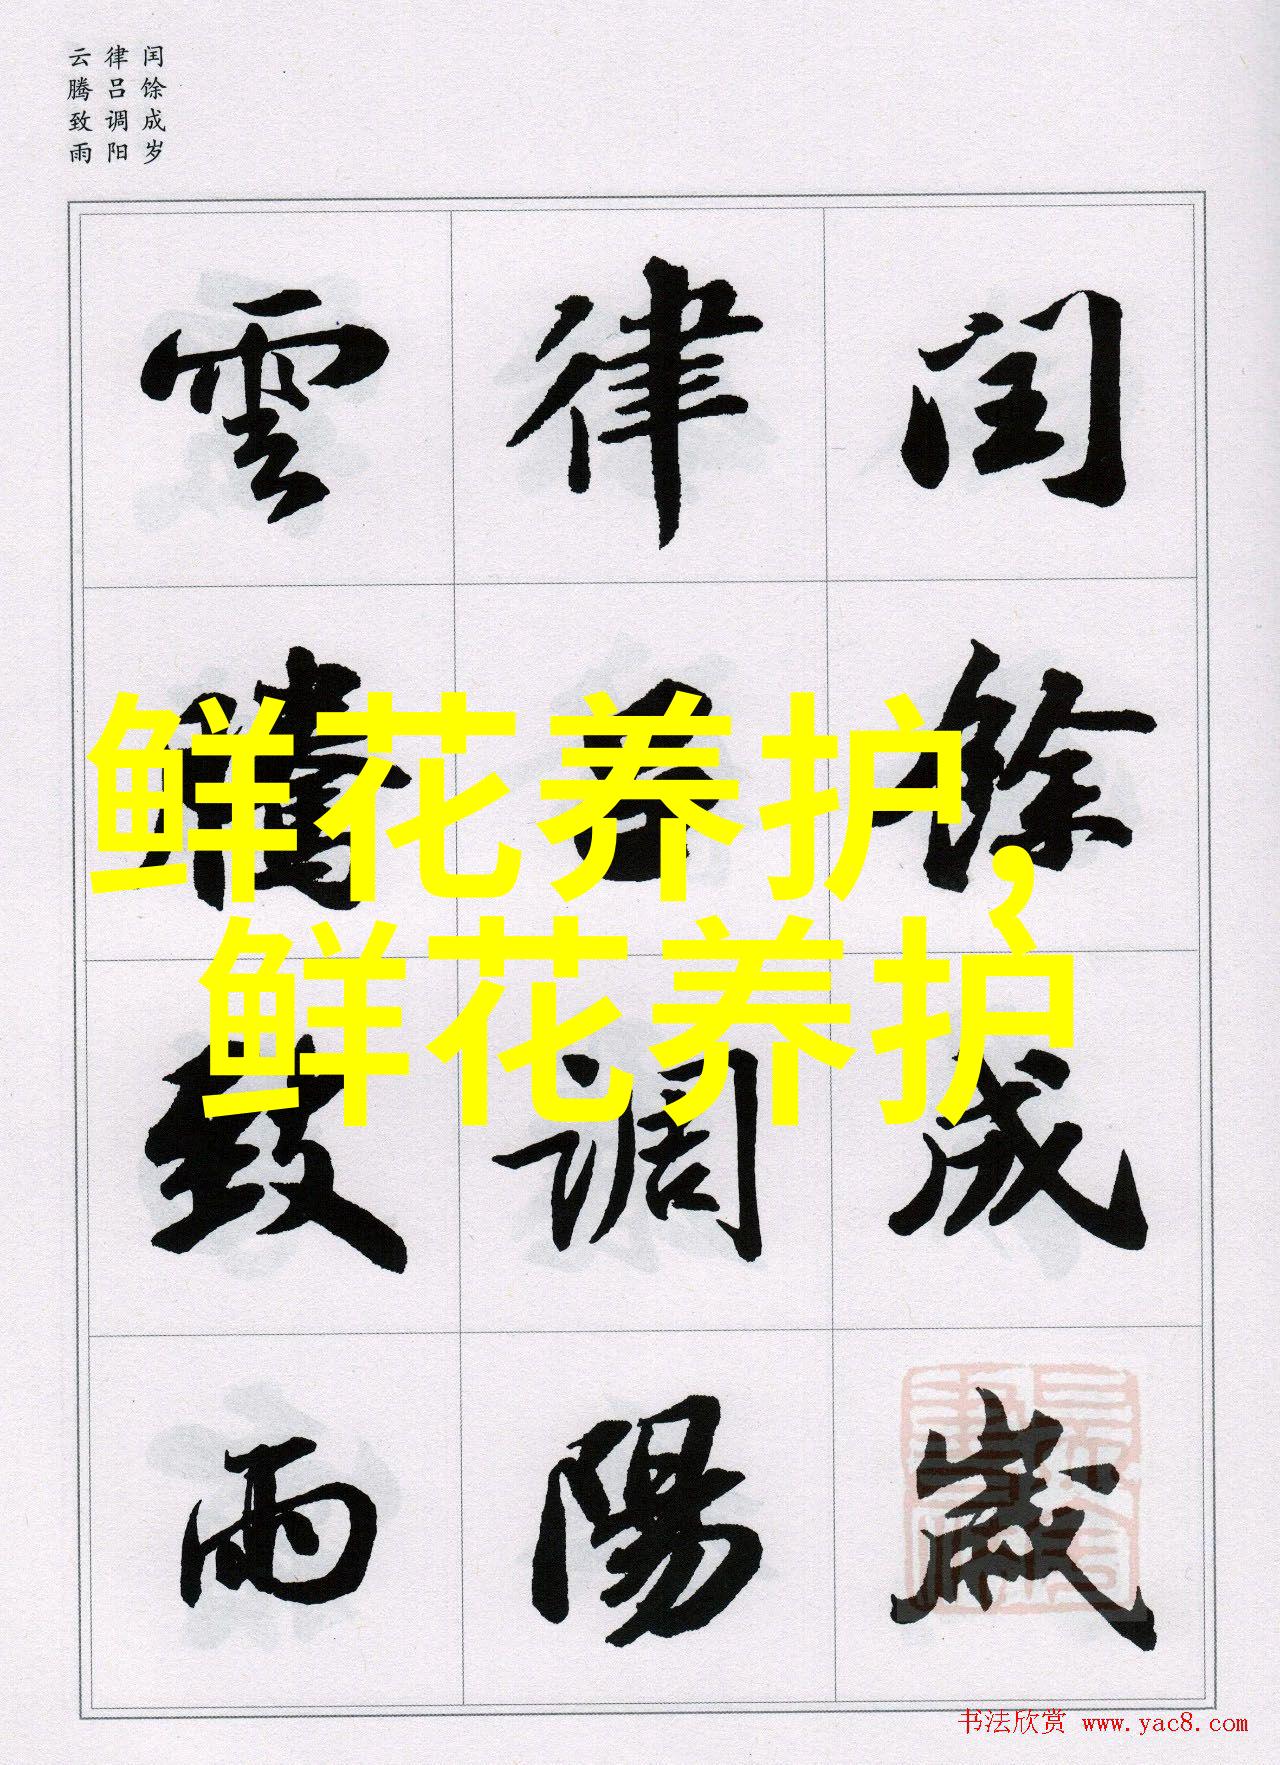 闰馀成岁
律吕调阳
云腾致雨
閏餘成歲
律吕調陽
雲騰致雨
鲜花养护，
鲜花养护
书法欣赏 www.yac8.com